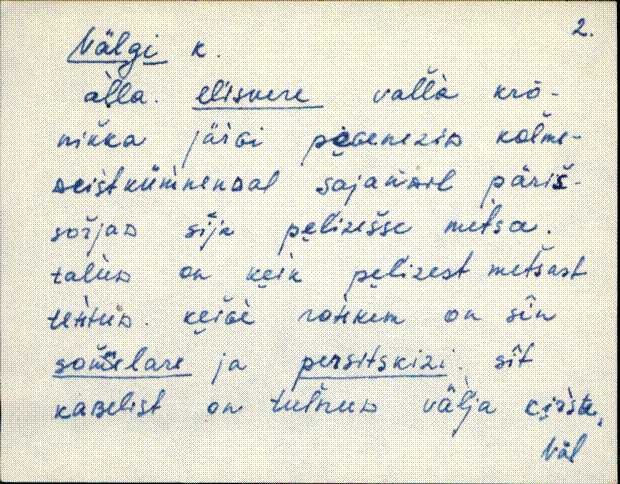 2.
Välgi k.
àlla. elisvere valla krò-
nikka järɢi pəɢenezið kolme-
ðeistkümneņðal sajanðil päriš-
sorjað sīja pęlizešše metsa.
taluð on kęik pęlizest metšast
tehtuð. kęiɢè rohkem on sīn
somelare ja persitskizi. sīt
kaʙelist on tulnuð välja kirstə,
Väl